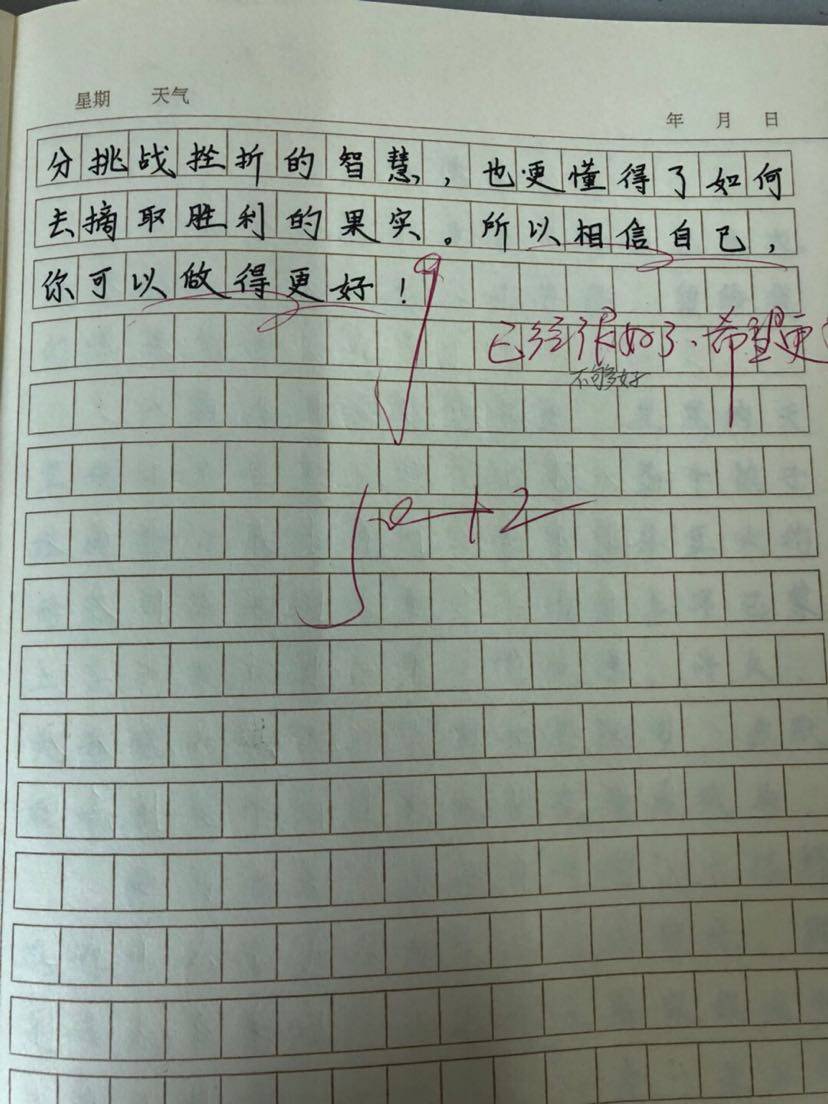 星期 天气
年 月 日
分挑战挫折的智慧，也更懂得了如何
去摘取胜利的果实。所以相信自己，
你可以做得更好！
已经很好了、希望更
不够好